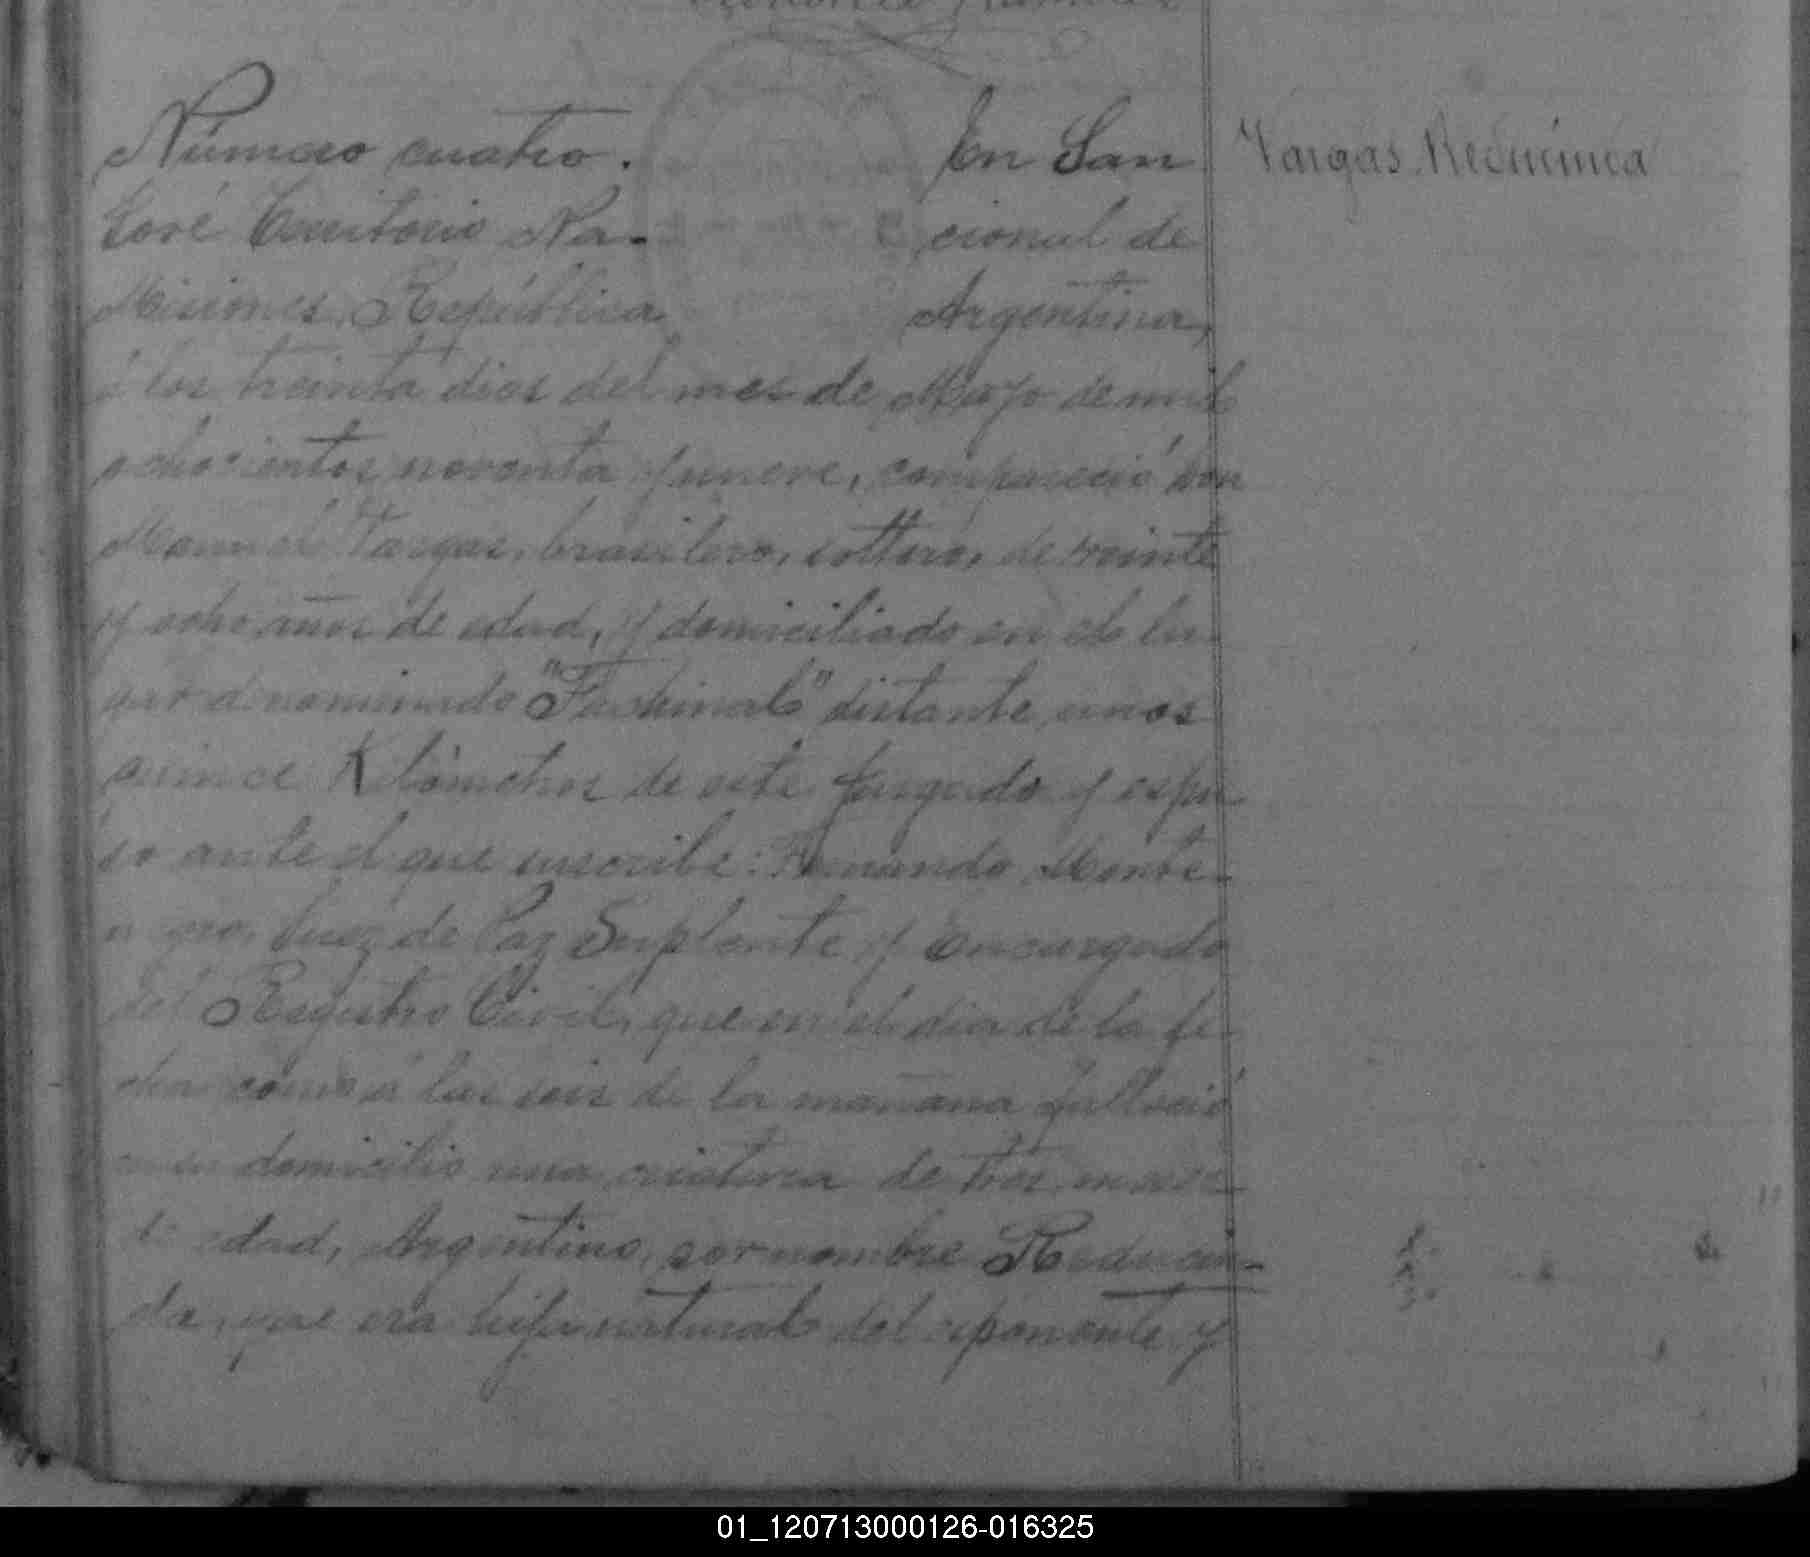 Número cuatro. En San
José Territorio Na- cional de
Misiones, República Argentina,
á los treinta dias del mes de Mayo de mil
ochocientos noventa y nueve, compareció don
Manuel Vargas, brasilero, soltero, de treinta
y ocho años de edad, y domiciliado en el lu-
gar denominado "Fachinal" distante unos
quince Kilómetros de este Juzgado y espu-
so ante el que suscribe: Fernando Monte-
negro, Juez de Paz Suplente y Encargado
del Registro Civil, que en el dia de la fe-
cha como á las seis de la mañana falleció
en su domicilio una criatura de tres meses
de edad, Argentina, por nombre
que era hija natural del esponente y
Vargas
01_120713000126-016325